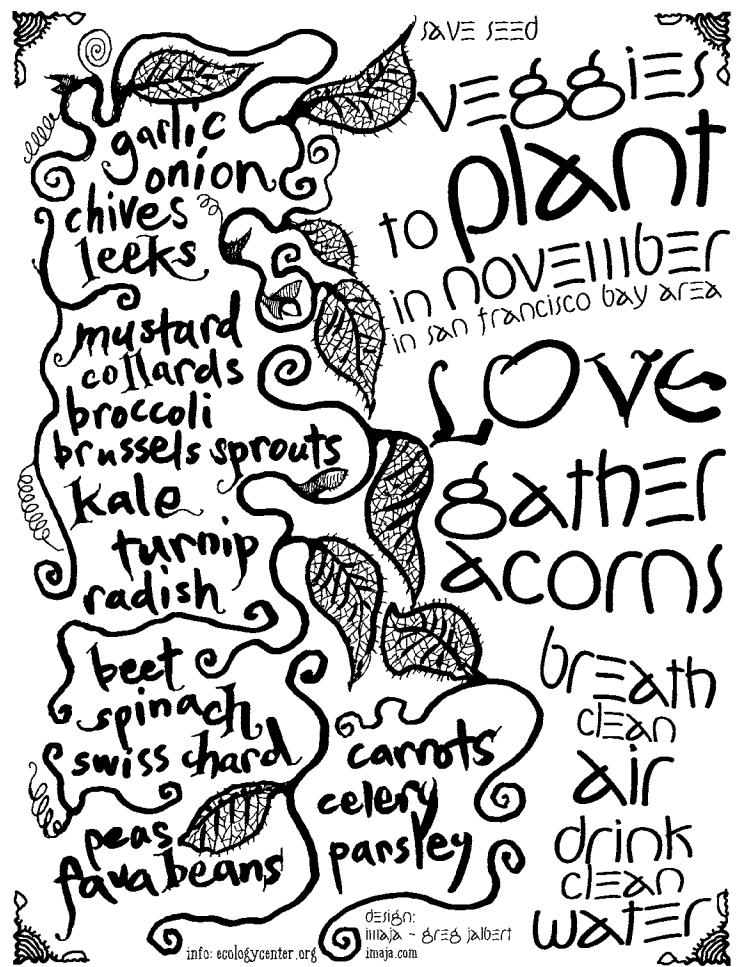 save seed
veggies
to plant
in november
in san francisco bay area
garlic
onion
chives
leeks
mustard
collards
broccoli
brussels sprouts
kale
turnip
radish
beet
spinach
swiss chard
peas
fava beans
carrots
celery
parsley
LOVE
gather
acorns
breath
clean
air
drink
clean
water
design:
imaja - greg jalbert
imaja.com
info: ecologycenter.org